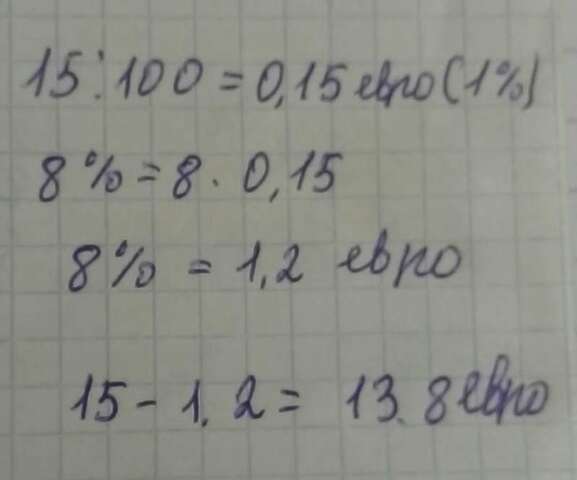 15:100 = 0,15 евро (1%)
8% = 8 · 0,15
8% = 1,2 евро
15 - 1,2 = 13.8 евро